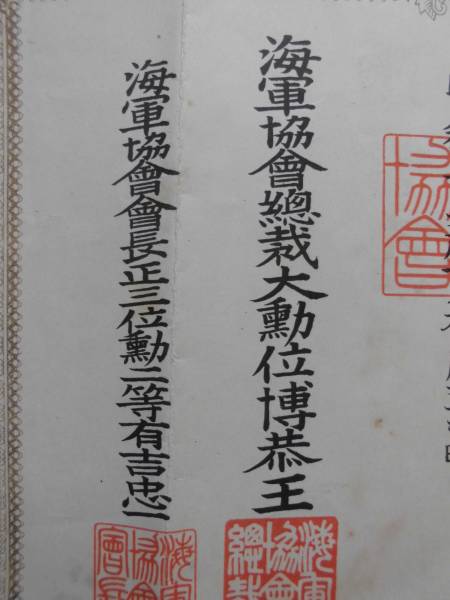 協會
海軍協會總裁大勳位博恭王
海軍協會會長正三位勳二等有吉忠一
海軍協會總裁
海軍協會會長